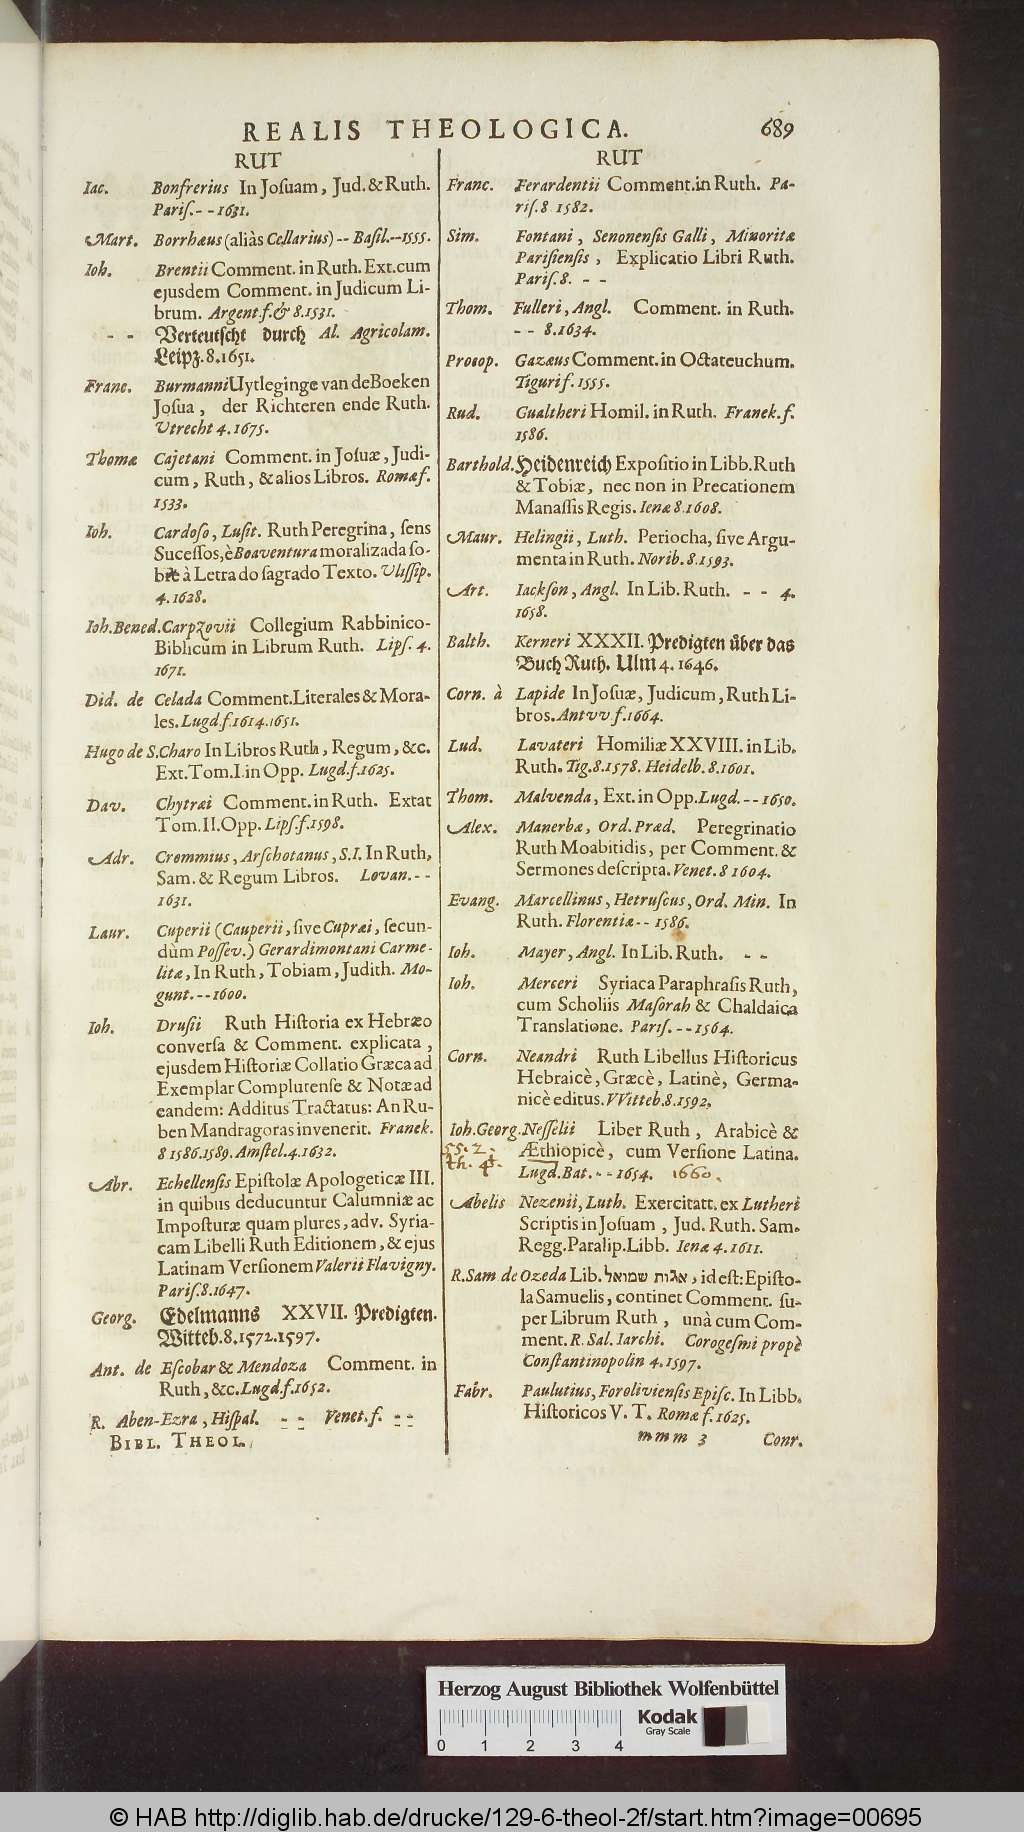 REALIS THEOLOGICA. 689
RUT
Iac. Bonfrerius In Joſuam, Jud. & Ruth.
Pariſ. - - 1631.
Mart. Borrhæus (aliàs Cellarius) -- Baſil. -- 1555.
Ioh. Brentii Comment. in Ruth. Ext. cum
ejusdem Comment. in Judicum Li-
brum. Argent. f. & 8. 1531.
- - Verteutſcht durch Al. Agricolam.
Leipz. 8. 1651.
Franc. Burmanni Uytleginge van de Boeken
Joſua, der Richteren ende Ruth.
Utrecht 4. 1675.
Thomæ Cajetani Comment. in Joſuæ, Judi-
cum, Ruth, & alios Libros. Romæ f.
1533.
Ioh. Cardoſo, Luſit. Ruth Peregrina, ſens
Suceſſos, è Boaventura moralizada ſo-
bre à Letra do ſagrado Texto. Uliſſip.
4. 1628.
Ioh. Bened. Carpzovii Collegium Rabbinico-
Biblicum in Librum Ruth. Lipſ. 4.
1671.
Did. de Celada Comment. Literales & Mora-
les. Lugd. f. 1614. 1651.
Hugo de S. Charo In Libros Ruth, Regum, &c.
Ext. Tom. I. in Opp. Lugd. f. 1625.
Dav. Chytræi Comment. in Ruth. Extat
Tom. II. Opp. Lipſ. f. 1598.
Adr. Crommius, Arſchotanus, S. I. In Ruth,
Sam. & Regum Libros. Lovan. - -
1631.
Laur. Cuperii (Cauperii, ſive Cupræi, ſecun-
dùm Poſſev.) Gerardimontani Carme-
litæ, In Ruth, Tobiam, Judith. Mo-
gunt. -- 1600.
Ioh. Druſii Ruth Hiſtoria ex Hebræo
converſa & Comment. explicata,
ejusdem Hiſtoriæ Collatio Græca ad
Exemplar Complutenſe & Notæ ad
eandem: Additus Tractatus: An Ru-
ben Mandragoras invenerit. Franek.
8 1586. 1589. Amſtel. 4. 1632.
Abr. Echellenſis Epiſtolæ Apologeticæ III.
in quibus deducuntur Calumniæ ac
Impoſturæ quam plures, adv. Syria-
cam Libelli Ruth Editionem, & ejus
Latinam Verſionem Valerii Flavigny.
Pariſ. 8. 1647.
Georg. Edelmanns XXVII. Predigten.
Witteb. 8. 1572. 1597.
Ant. de Eſcobar & Mendoza Comment. in
Ruth, &c. Lugd. f. 1652.
R. Aben-Ezra, Hiſpal. - - Venet. f. - -
BIBL. THEOL.
RUT
Franc. Ferardentii Comment. in Ruth. Pa-
riſ. 8 1582.
Sim. Fontani, Senonenſis Galli, Minoritæ
Pariſienſis, Explicatio Libri Ruth.
Pariſ. 8. - -
Thom. Fulleri, Angl. Comment. in Ruth.
- - 8. 1634.
Procop. Gazæus Comment. in Octateuchum.
Tiguri f. 1555.
Rud. Gualtheri Homil. in Ruth. Franek. f.
1586.
Barthold. Heidenreich Expoſitio in Libb. Ruth
& Tobiæ, nec non in Precationem
Manaſſis Regis. Ienæ 8. 1608.
Maur. Helingii, Luth. Periocha, ſive Argu-
menta in Ruth. Norib. 8. 1593.
Art. Iackſon, Angl. In Lib. Ruth. - - 4.
1658.
Balth. Kerneri XXXII. Predigten über das
Buch Ruth. Ulm 4. 1646.
Corn. à Lapide In Joſuæ, Judicum, Ruth Li-
bros. Antvv f. 1664.
Lud. Lavateri Homiliæ XXVIII. in Lib.
Ruth. Tig. 8. 1578. Heidelb. 8. 1601.
Thom. Malvenda, Ext. in Opp. Lugd. -- 1650.
Alex. Manerbæ, Ord. Præd. Peregrinatio
Ruth Moabitidis, per Comment. &
Sermones deſcripta. Venet. 8 1604.
Evang. Marcellinus, Hetruſcus, Ord. Min. In
Ruth. Florentiæ -- 1586.
Ioh. Mayer, Angl. In Lib. Ruth. - -
Ioh. Merceri Syriaca Paraphraſis Ruth,
cum Scholiis Maſorah & Chaldaica
Translatione. Pariſ. -- 1564.
Corn. Neandri Ruth Libellus Hiſtoricus
Hebraicè, Græcè, Latinè, Germa-
nicè editus. VVitteb. 8. 1592.
Ioh. Georg. Neſſelii Liber Ruth, Arabicè &
55. 2. Æthiopicè, cum Verſione Latina.
th. 4. Lugd. Bat. - - 1654. 1660.
Abelis Nezenii, Luth. Exercitatt. ex Lutheri
Scriptis in Joſuam, Jud. Ruth. Sam.
Regg. Paralip. Libb. Ienæ 4. 1611.
R. Sam de Ozeda Lib. אגות שמואל, id eſt: Epiſto-
la Samuelis, continet Comment. ſu-
per Librum Ruth, unà cum Com-
ment. R. Sal. Iarchi. Corogeſmi propè
Conſtantinopolin 4. 1597.
Fabr. Paulutius, Forolivienſis Epiſc. In Libb.
Hiſtoricos V. T. Romæ f. 1625.
mmm 3 Conr.
Herzog August Bibliothek Wolfenbüttel
Kodak
Gray Scale
0 1 2 3 4
© HAB http://diglib.hab.de/drucke/129-6-theol-2f/start.htm?image=00695